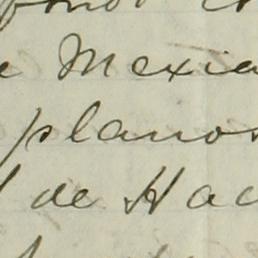 e Mexia
planos
l de Hac